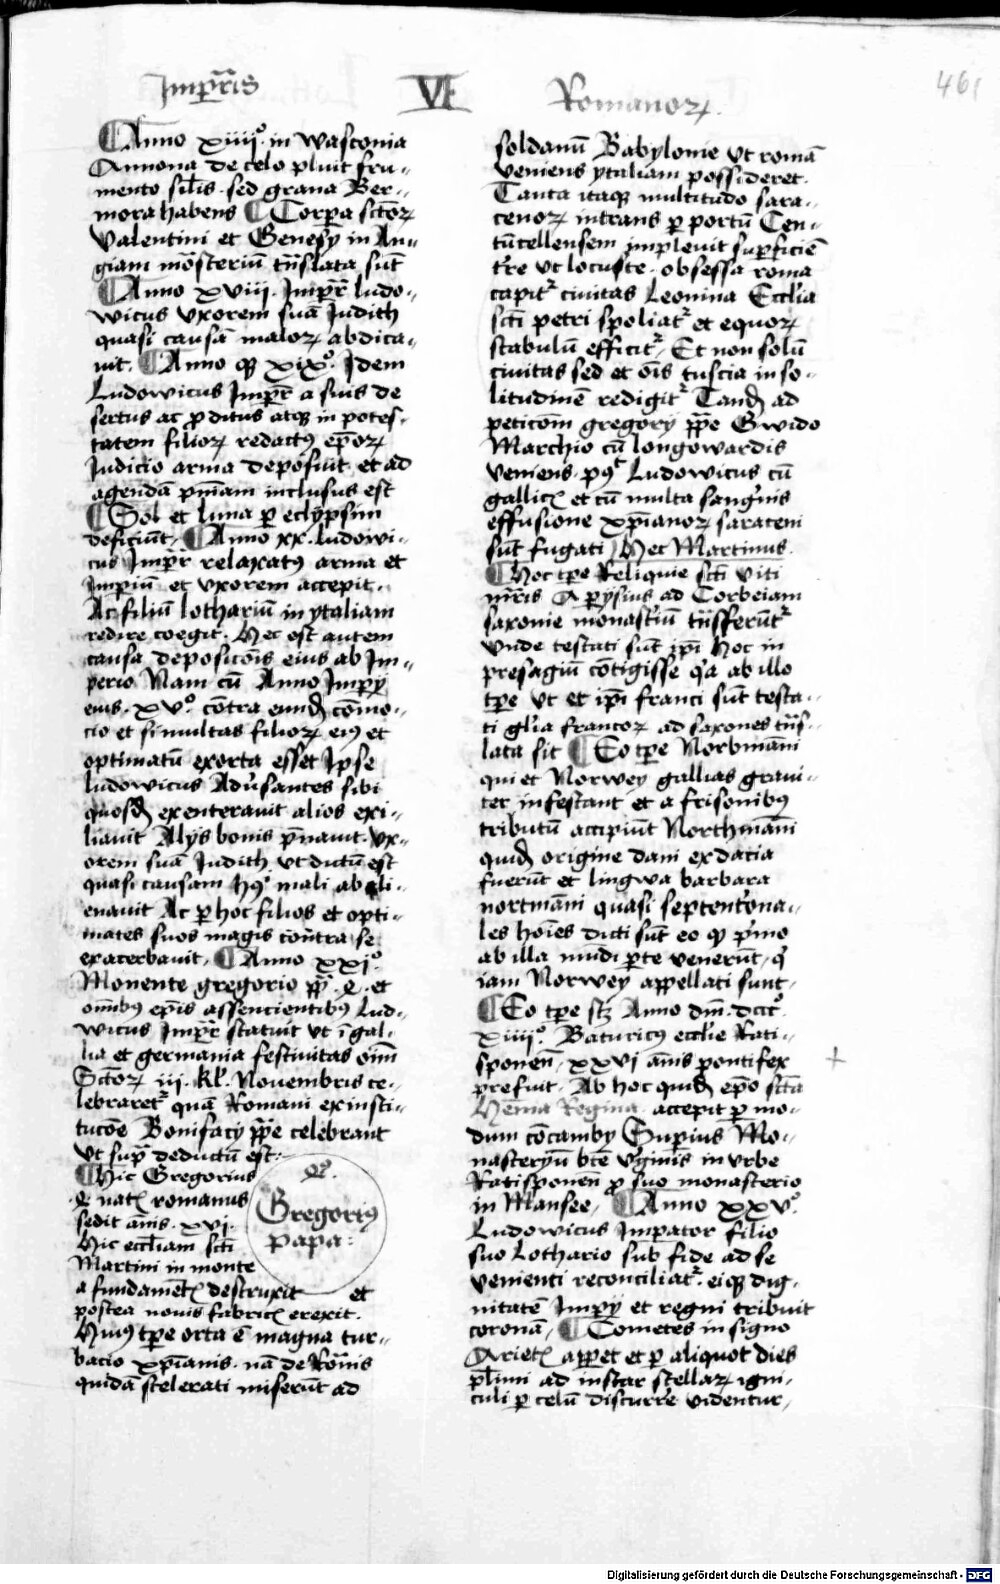 Imp̄ris VI Romanoꝝ
461
¶ Anno xiiii° in wasconia
Annona de celo pluit fru-
mento sil̄is · sed grana Ber-
mora habens ¶ Corpa sctōꝝ
Valentini et Genesy in Au-
giam mōsteriū tn̄slata sūt
¶ Anno xviii · Imp̄r ludo-
wicus vxorem suā Judith
quasi causā maloꝝ abdica-
uit · ¶ Anno qꝫ xix° · Idem
Ludowicus Imp̄r a suis de
sertus ac ꝓditus atqꝫ in potes-
tatem filioꝝ redactꝰ ep̄oꝝ
Judicio arma deposuit et ad
agendā pn̄iam inclusus est
¶ Sol et luna ꝑ eclypsim
deficiūt · ¶ Anno xx · ludowi-
cus Imp̄r relaxatꝰ arma et
Imp̄iū et vxorem accepit ·
Ac filiū lothariū in ytaliam
redire coegit · Hec est autem
causa deposicōis eius ab Im-
perio Nam cū Anno Imp̄y
eius · xv° · cōtra eundē cōmo-
cio et simultas filioꝝ eiꝰ et
optimatū exorta esset Ipse
ludowicus Adūsantes sibi
quosdā exenterauit alios exi-
liauit Alijs bonis p̄uauit · vx-
orem suā Judith vt dictū est
quasi causam hꝰ mali abali-
enauit Ac ꝑ hoc filios et opti-
mates suos magis cōntra se
exacerbauit · ¶ Anno xxi° ·
Monente gregorio pp̄ · 4 · et
om̄ibꝰ ep̄is assencientibꝰ Lud-
wicus Imp̄r statuit vt ī gal-
lia et germania festiuitas oīm
Sctōꝝ iii · kl̄ · Nouembris ce-
lebraretꝰ quā Romani ex insti-
tucōe Bonifacy pp̄e celebrant
Vt sup̄ deductū est ·
¶ Hic Gregorius
4 natꝰ romanus
sedit ān̄is · xvi ·
Hic ecclīam scti
Martini in monte
a fundamētꝭ destruxit et
postea nouis fabricꝭ erexit ·
Huiꝰ tp̄e orta ē magna tur-
bacio xp̄ianis · nā de Romīs
quidā scelerati miserūt ad
4°
Gregoriꝰ
papa ·
soldanū Babylonie vt romā
veniens ytaliam possideret ·
Tanta itaqꝫ multitudo sara-
cenoꝝ intrans ꝑ portū Cen-
tūcellensem impleuit supficiē
tr̄e vt locuste · obsessa roma
capitꝰ ciuitas Leonina Ecclīa
scti petri spoliatꝰ et equoꝝ
stabulū efficitꝰ, Et non solū
ciuitas sed et oīs tuscia in so-
litudinē redigitꝰ Tandē ad
peticōem gregory pp̄e Gwido
Marchio cū longowardis
veniens · pꝰ Ludowicus cū
gallicꝭ et cū multa sangnīs
effusione xp̄ianoꝝ saraceni
sūt fugati / Hec Martinus ·
¶ Hoc tp̄e Reliquie scti viti
mr̄ris A ꝑysius ad Corbeiam
saxonie monast'iū tn̄sferūtꝰ
vnde testati sūt ip̄i hoc in
presagiū cōtigisse qꝛ ab illo
tp̄e vt et ip̄i franci sūt testa-
ti gl̄ia francoꝝ ad saxones tn̄s-
lata sit ¶ Eo tp̄e Norbmāni
qui et Norwey gallias graui-
ter infestant et a frisonibꝰ
tributū accipiūt Northmāni
quidē origine dani ex dacia
fuerūt et lingwa barbara
nortmāni quasi septentōna-
les hoīes dicti sūt eo qꝫ p'mo
ab illa mūdi ꝑte venerūt, qͥ
iam Norwey appellati sunt ·
¶ Eo tp̄e scꝫ Anno dn̄i · dccc°
xiiii° · Baturicꝰ ecclīe Rati-
sponen̄ · xxvi ān̄is pontifex
prefuit · Ab hoc quidē ep̄o sctā
Hēma Regina · accepit ꝑ mo-
dum cōcamby Supius Mo-
nasteryū btē v'gīnis in vrbe
Ratisponen̄ ꝓ suo monasterio
in Mansee, ¶ Anno xxv° ·
Ludowicus Imperator filio
suo Lothario sub fide ad se
venienti reconciliatꝰ · eiqꝫ dig-
nitatē Impy et regni tribuit
coronā, ¶ Cometes in signo
Arietꝭ apparet et ꝑ aliquot dies
pl̄imi ad instar stellaꝝ igni-
culi ꝑ celū discurre videntur,
Digitalisierung gefördert durch die Deutsche Forschungsgemeinschaft - DFG